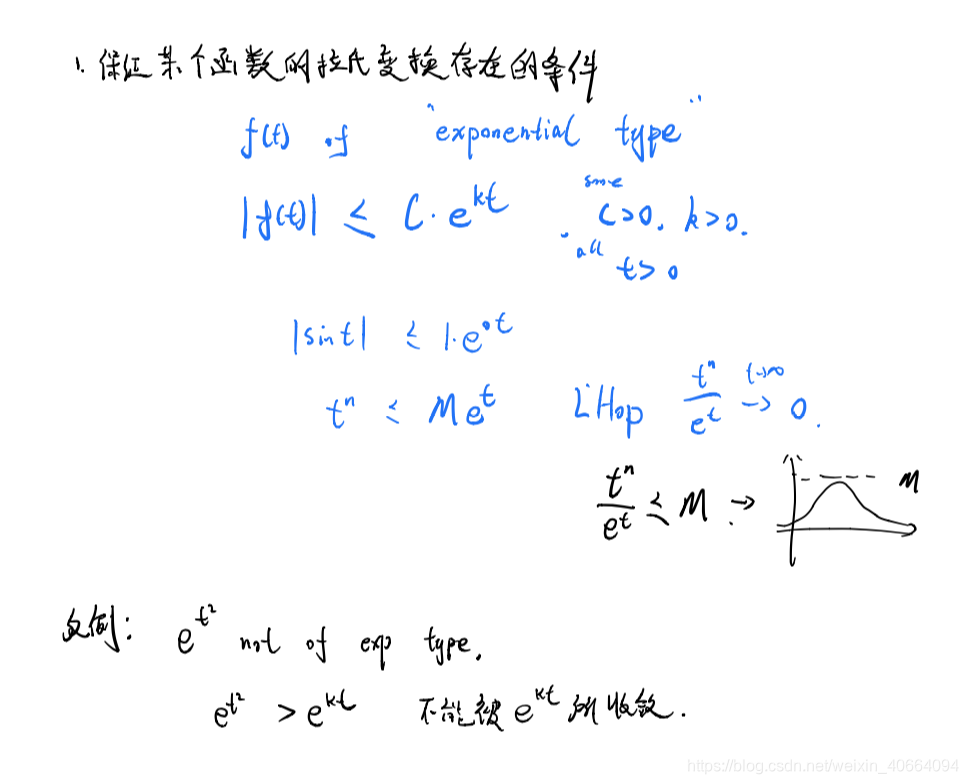 1. 保证某个函数的拉氏变换存在的条件
f(t) of "exponential type"
|f(t)| ≤ C·e^{kt} some C>0, k>0.
all t>0
|sint| ≤ 1·e^{0t}
t^n ≤ Me^t L'Hop t^n/e^t t→∞ → 0.
t^n/e^t ≤ M → M
反例: e^{t^2} not of exp type.
e^{t^2} > e^{kt} 不能被e^{kt}所收敛.
https://blog.csdn.net/weixin_40664094